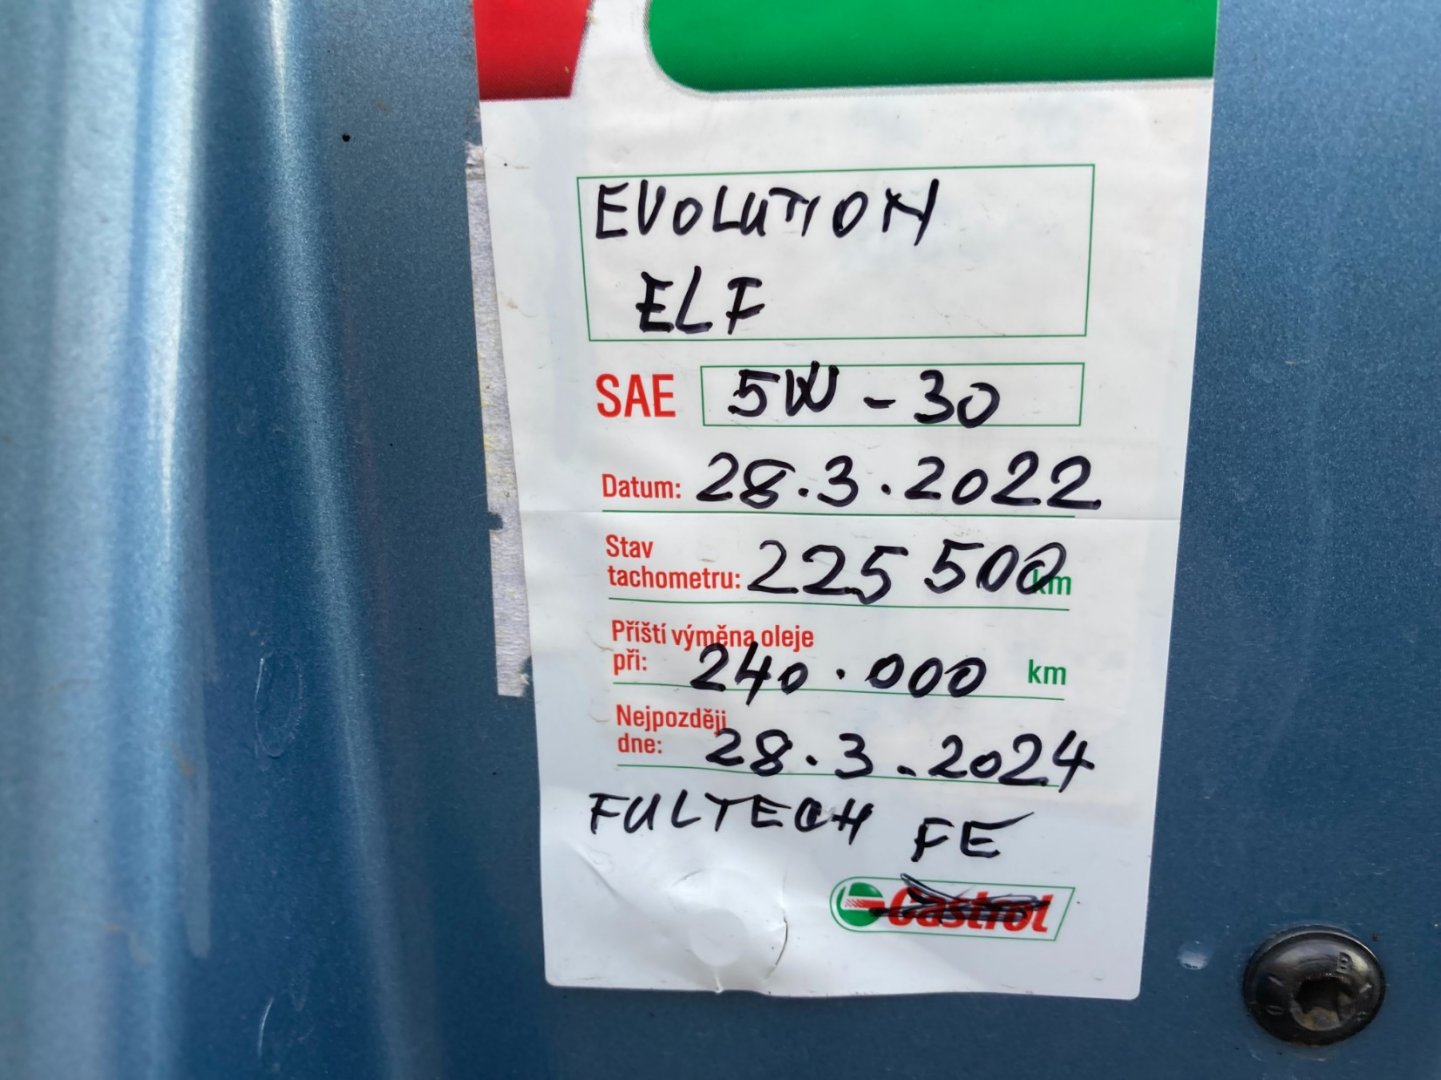 EVOLUTION
ELF
SAE 5W-30
Datum: 28.3.2022
Stav
tachometru: 225 500 km
Příští výměna oleje
při: 240.000 km
Nejpozději
dne: 28.3.2024
FULTECH FE
Castrol